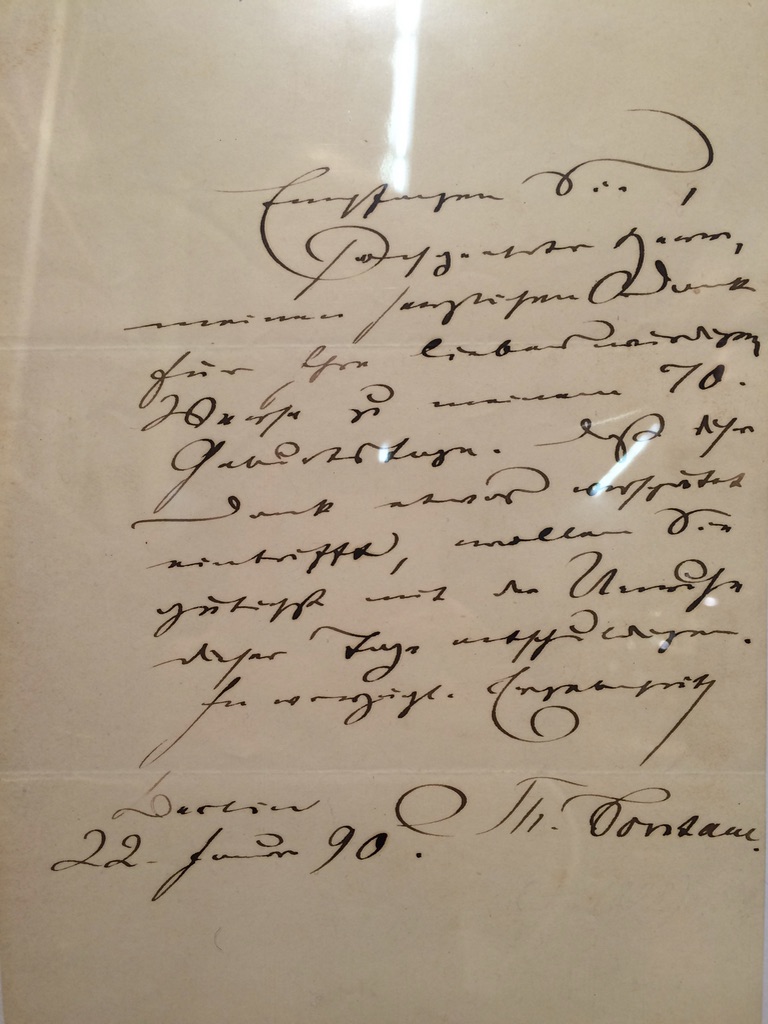 Empfangen Sie,
hochgeehrter Herr,
meinen herzlichsten Dank
für Ihre liebenswürdigen
Verse zu meinem 70.
Geburtstage. Daß dieser
Dank etwas verspätet
eintrifft, wollen Sie
gütigst mit der Unruhe
dieser Tage entschuldigen.
In vorzügl. Ergebenheit
Th. Fontane.
Berlin
22. Januar 90.